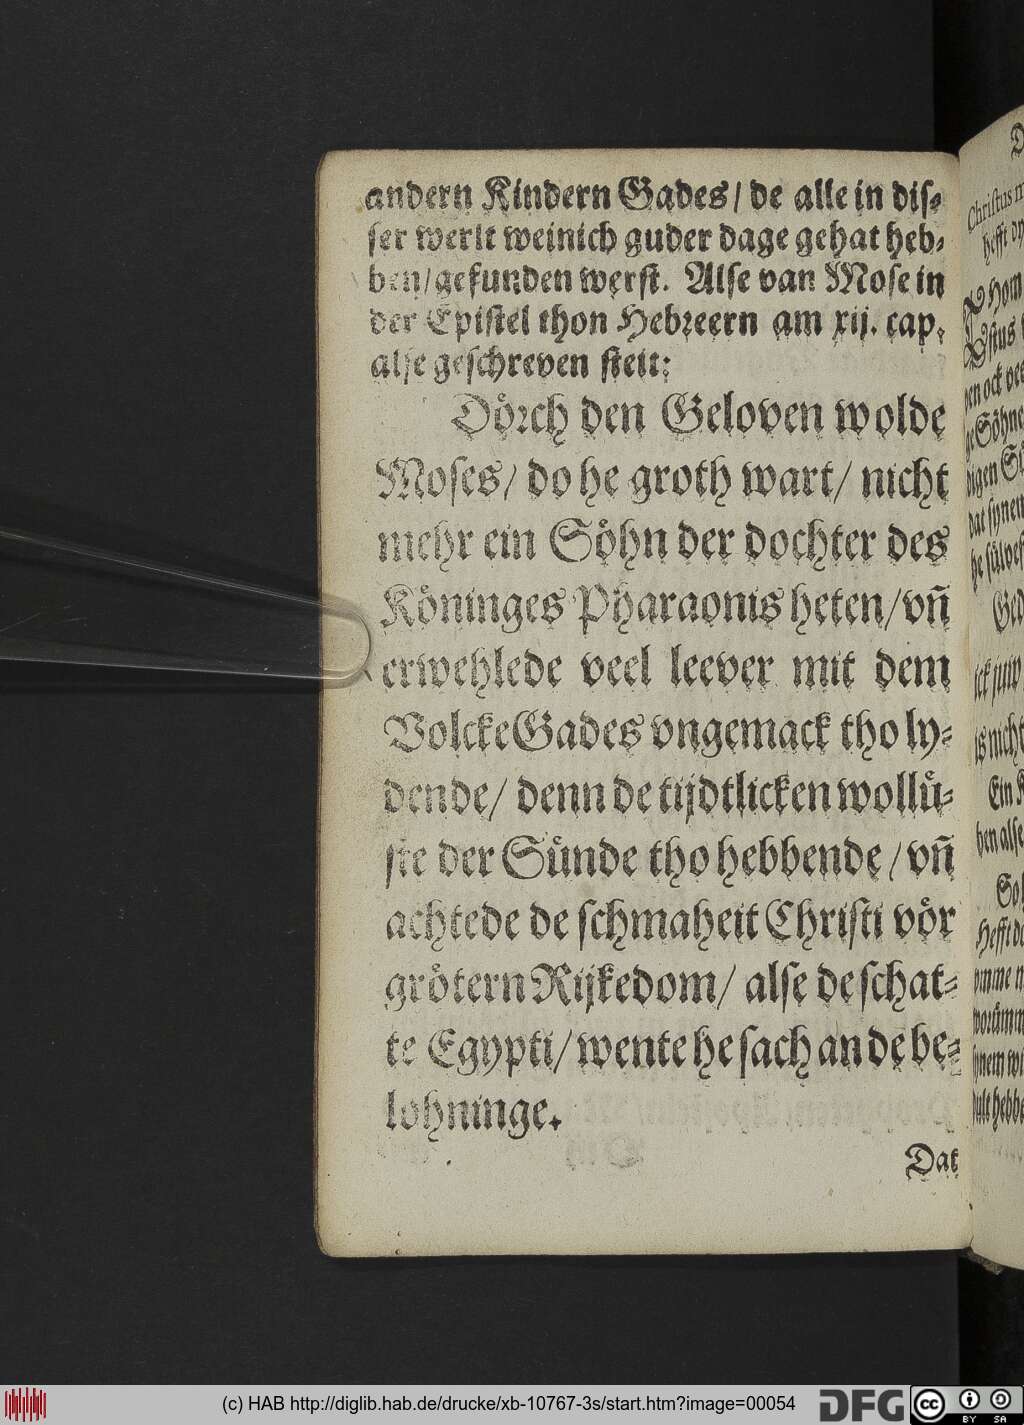 andern Kindern Gades/ de alle in dis-
ser werlt weinich guder dage gehat heb-
ben/gefunden werst. Alse van Mose in
der Epistel thon Hebreern am xij. cap.
alse geschreven steit:
Dörch den Geloven wolde
Moses/ do he groth wart/ nicht
mehr ein Söhn der dochter des
Köninges Pharaonis heten/vn̄
erwehlede veel leever mit dem
Volcke Gades vngemack tho ly-
dende/ denn de tijdtlicken wollü-
ste der Sünde tho hebbende/vn̄
achtede de schmaheit Christi vör
grötern Rijkedom/ alse de schat-
te Egypti/wente he sach an de be-
lohninge.
Dat
Christus
hefft
ock
Söhne
is nicht
Ein
alse
Hefft
(c) HAB http://diglib.hab.de/drucke/xb-10767-3s/start.htm?image=00054
DFG
cc
BY SA